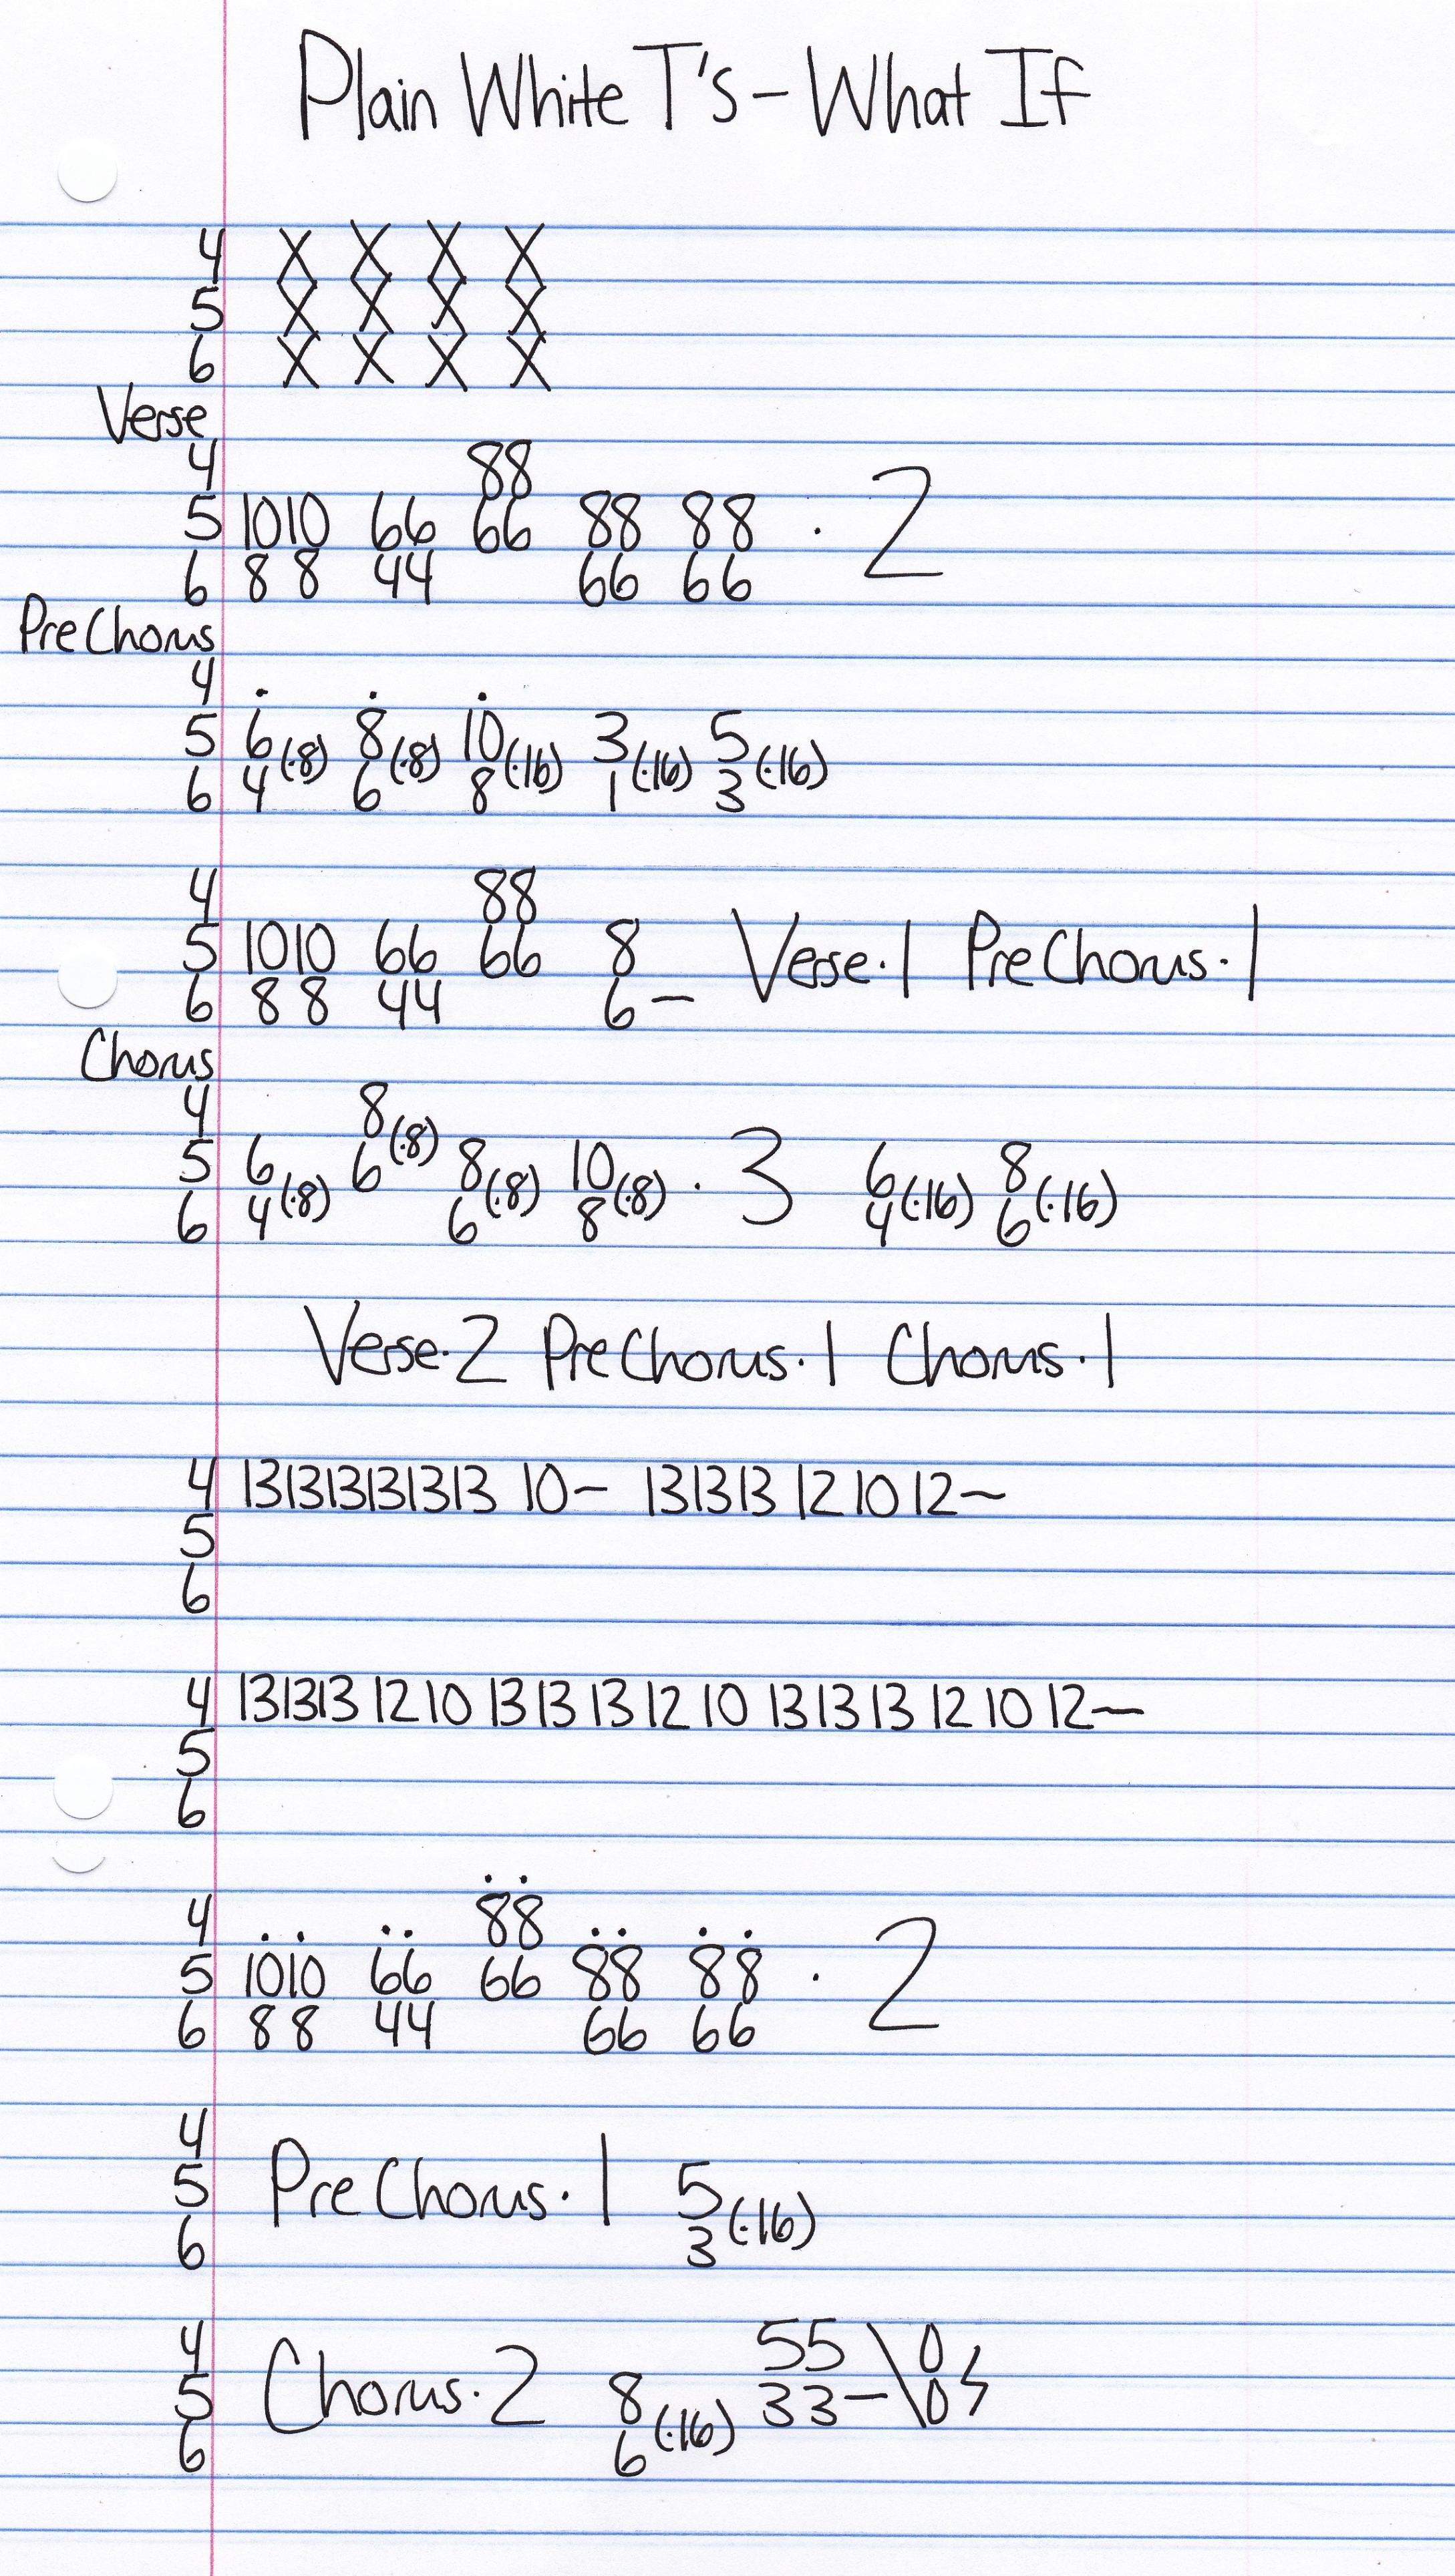 Plain White T's - What If
4 X X X X
5 X X X X
6 X X X X
Verse
4 88
5 1010 66 66 88 88 · 2
6 8 8 44 66 66
PreChorus
4 . . .
5 6(·8) 8(·8) 10(·16) 3(·16) 5(·16)
6 4 6 8 1 3
4 88
5 1010 66 66 8 Verse·1 PreChorus·1
6 8 8 44 6–
Chorus
4 8(·8)
5 6(·8) 6 8(·8) 10(·8) · 3 6(·16) 8(·16)
6 4 6 8 4 6
Verse·2 PreChorus·1 Chorus·1
4 131313131313 10– 131313 12 10 12~
5
6
4 131313 12 10 13 13 13 12 10 13 13 13 12 10 12~
5
6
4 . . . . 88 . . . .
5 1010 66 66 88 88 · 2
6 8 8 44 66 66
4
5 PreChorus·1 5(·16)
6 3
4 55 \ 0
5 Chorus·2 8(·16) 33– \ 0
6 6